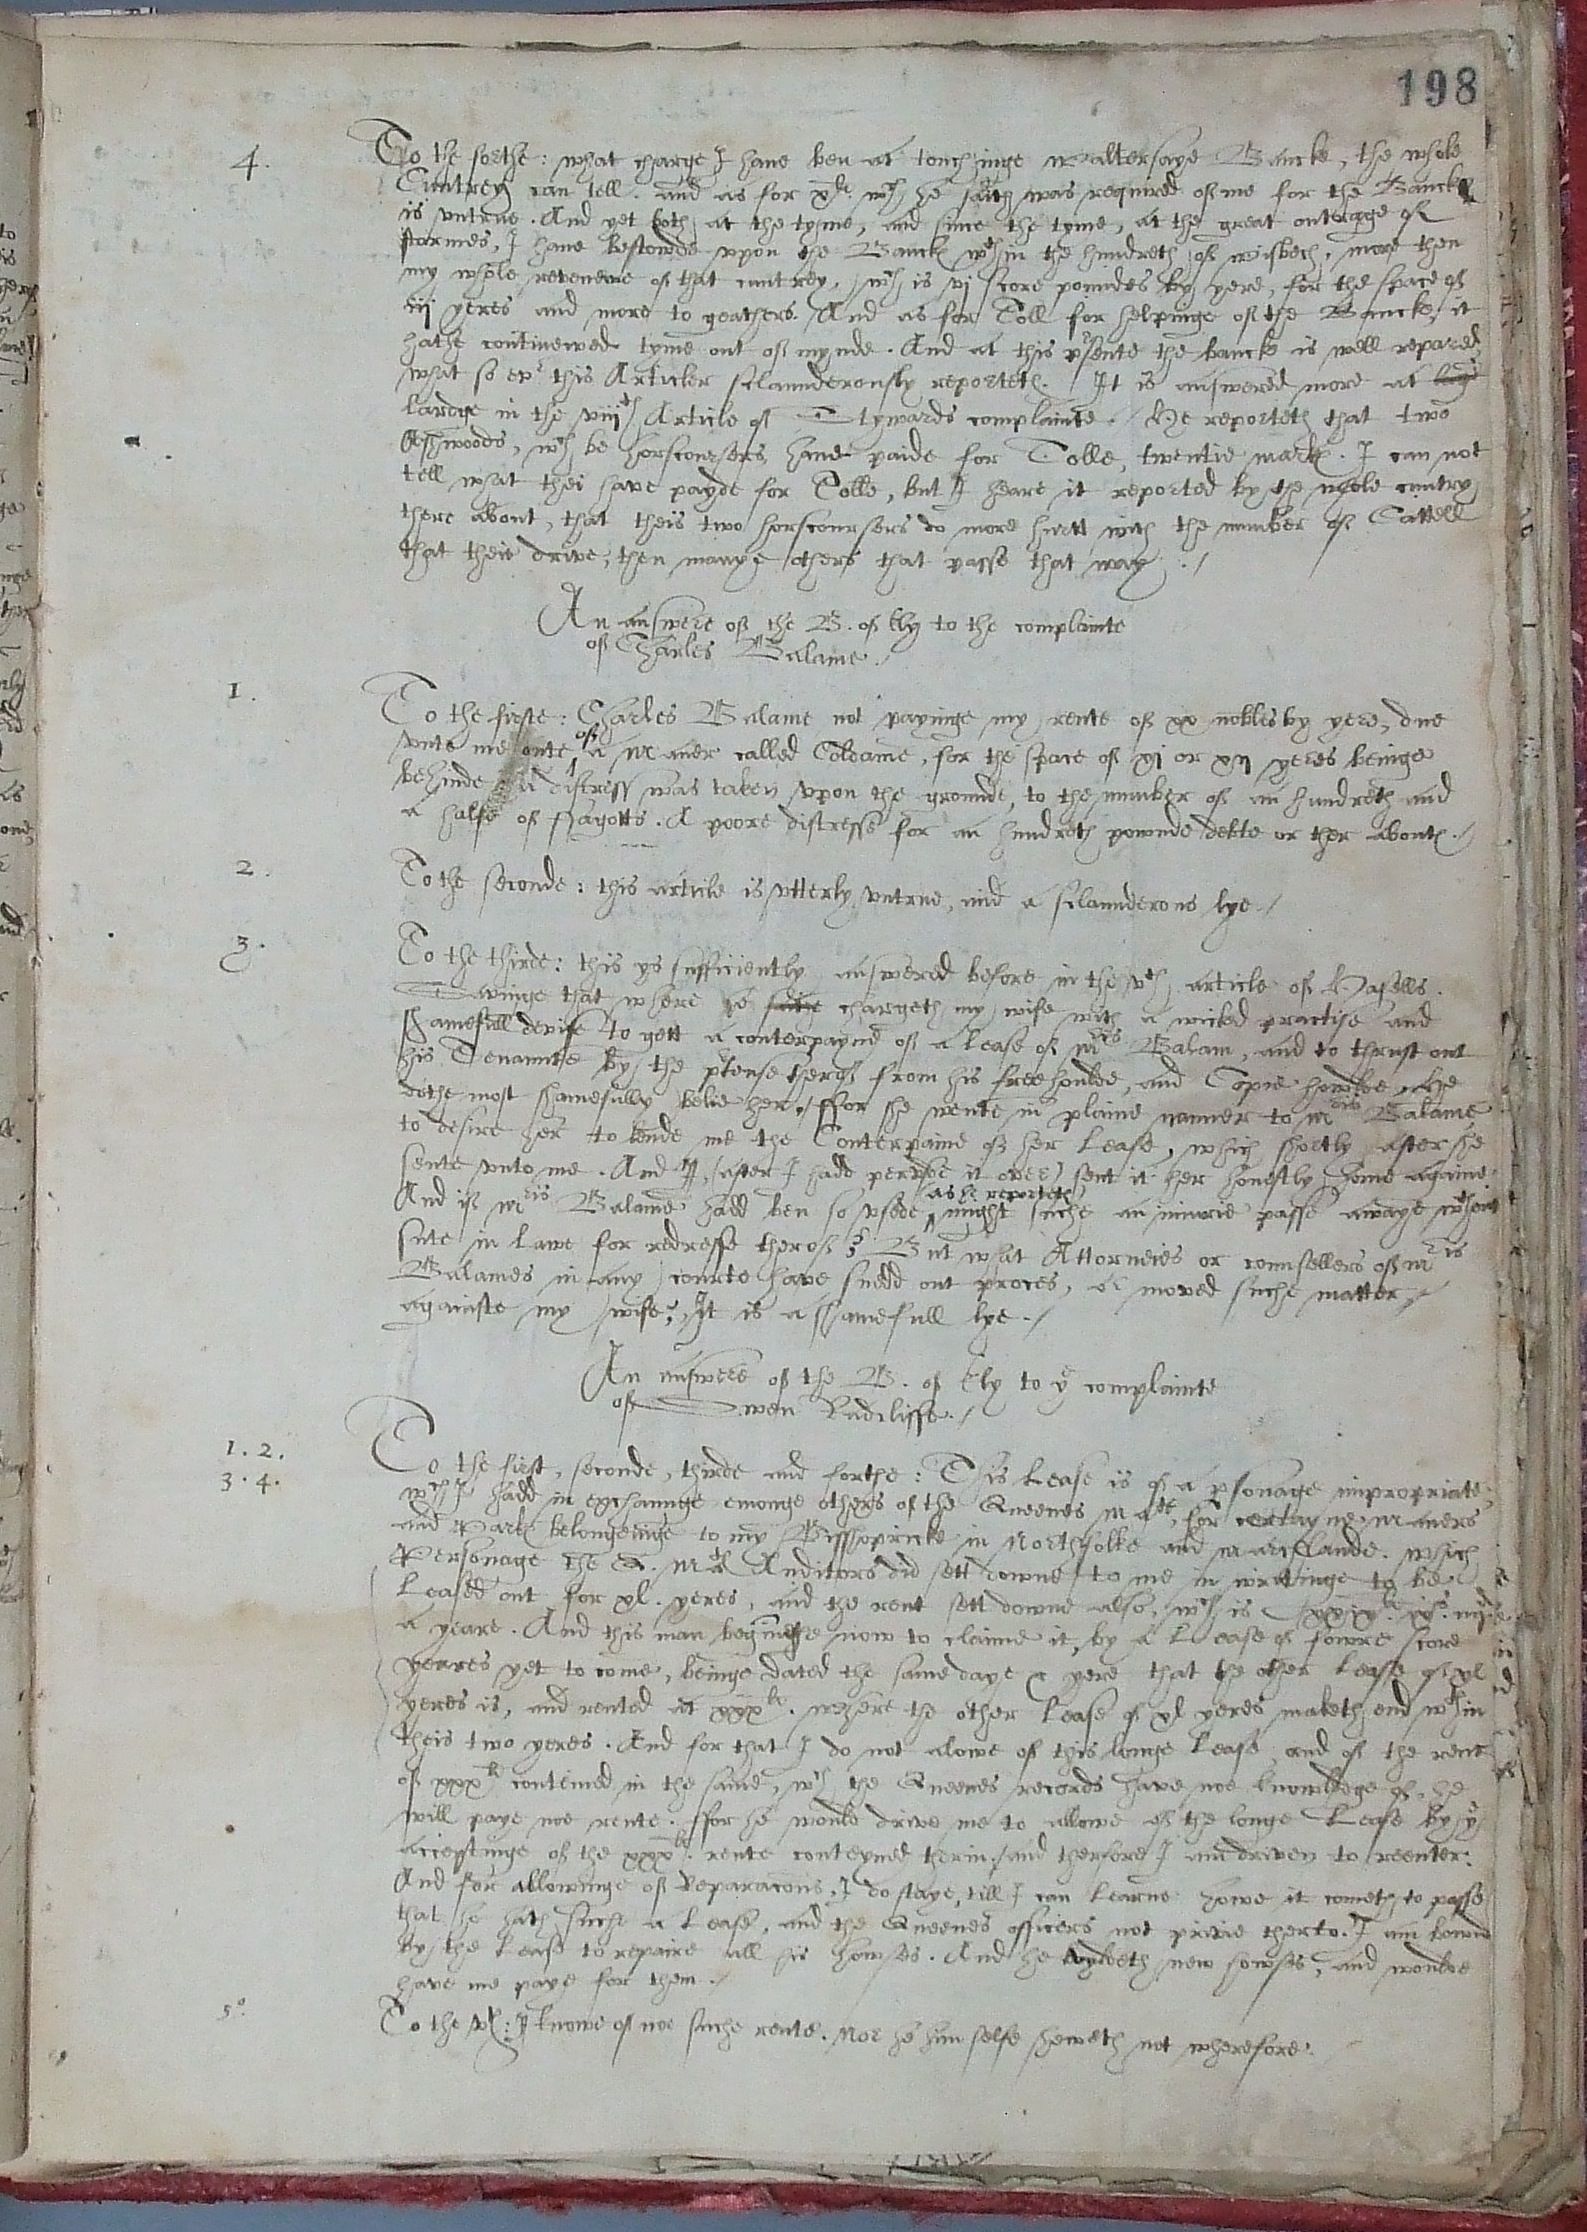 198
4. To the forthe: what charge I have ben at touchinge Waltersaye Bancke, the whole
Cuntrey can tell. and as for xli. wch he saith was required of me for the Bancke
is untrue. And yet both at the tyme, and since the tyme, at the great outrage of
stormes, I have bestowde upon the Banck wthin the hundreth of wisbech, more then
my whole revenewe of that cuntrey, wch is vj score poundes by yere, for the space of
iij yeres and more to geathers. And as for Toll for helpinge of the Bancke, it
hathe continewed tyme out of mynde. And at this psente the banck is well repared
what so evr this Articler sclaunderously reporteth. It is answered more at
lardge in the viijth Article of Stywards complainte. He reporteth that two
Ashwoods, wch be horscoursers have paide for Tolle, twentie marks. I can not
tell what thei have payde for Tolle, but I heare it reported by the whole cuntry
there about, that theis two horscoursers do more hurtt with the number of Cattell
that their drive, then manye others that passe that way./
An answere of the B. of Ely to the complainte
of Charles Balame./
1. To the firste: Charles Balame not payinge my rente of xx nobles by yere, due
unto me oute of a Maner called Coldame, for the space of xj or xij yeres beinge
behinde: a distress was taken upon the grounde, to the number of an hundreth and
a halfe of fagotts. A poore distresse for an hundreth pownde debte or ther about./
2. To the seconde: this article is utterly untrue, and a sclaunderous lye./
3. To the thirde: this ys sufficiently answered before in the vth article of Hasells.
Savinge that where he chargeth my wife with a wicked practise and
shamefull devise to gett a conterpayne of a Lease of Mrs Balam, and to thrust out
his Tenaunte by the ptense therof from his freehoulde, and Copie howlde, he
dothe most shamefully belie her./ ffor she wente in plaine manner to Mris Balame
to desire her to lende me the Conterpaine of her Lease, which shortly after she
sente unto me. And I, (after I hadd perused it over) sent it her honestly home againe.
And if Mris Balame hadd ben so used (as he reporteth) might suche an injurie passe awaye wthout
sute in Lawe for redresse therof? But what Attorneies or counsellers of Mris
Balames in any courte have suedd out proces, or moved suche matter
againste my wife? It is a shamefull lye./
An answere of the B. of Ely to ye complainte
of Owen Radcliffe./
1. 2.
3. 4. To the first, seconde, thirde and forthe: This Lease is of a psonage impropriate,
wch I hadd in exchaunge emonge others of the Queenes Matie, for certayne Maners
and Parks belongeinge to my Bisshopricke in Northfolke and Marchlande. Which
Personage the Q. Mats Auditors did sett downe to me in writinge to be
Leased out for xl. yeres, and the rent sett downe also, wch is
a yeare. And this man beginneth now to claime it, by a Lease of fowre score
yeares yet to come, beinge dated the same daye & yere that the other Lease of xl
yeres is, and rented at xxxli. where the other Lease of xl yeres maketh end wthin
theis two yeres. And for that I do not alowe of this longe Lease, and of the rent
of xxxli conteined in the same, wch the Queenes records have noe knowledge of, he
will paye noe rente. ffor he would drive me to allowe of the longe Lease by ye
acceptinge of the xxxli. rente conteyned therin./ and therfore I am driven to reenter.
And for allowinge of Reparacons, I do staye, till I can learne howe it cometh to passe
that he hath suche a Lease, and the Queenes officers not privie therto. I am bound
by the Lease to repaire all his howses. And he buyldeth new howses, and woulde
have me paye for them./
5o. To the vth: I knowe of noe suche rente. Nor he him selfe sheweth not wherefore.